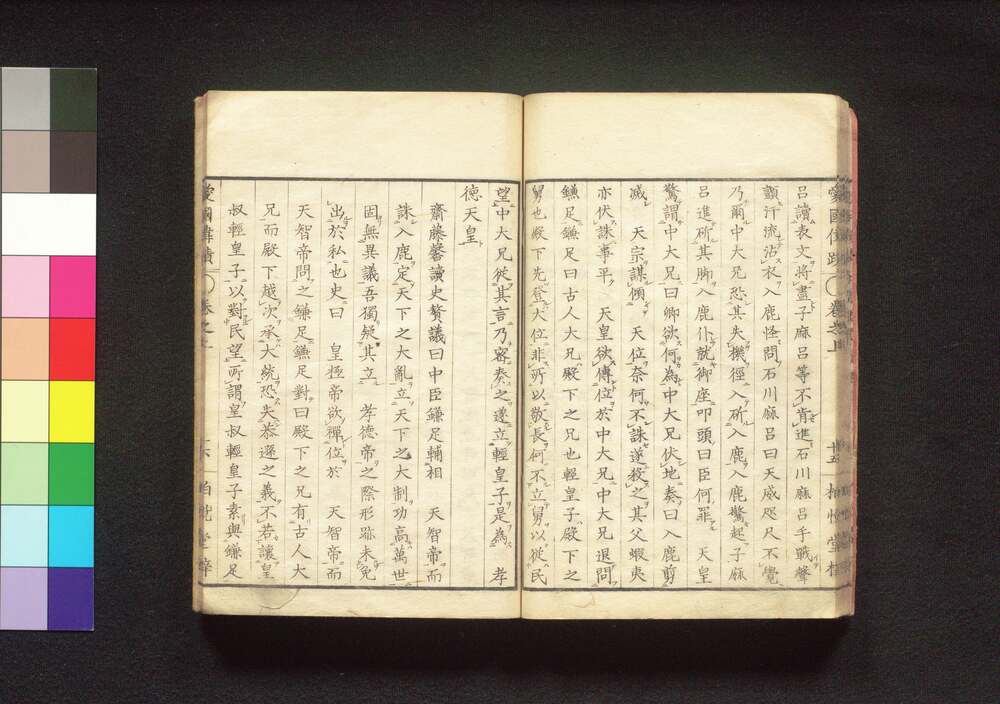 呂讀表文將盡子麻呂等不肯進石川麻呂手戰聲
顫汗流沾衣入鹿怪問石川麻呂曰天威咫尺不覺
乃爾中大兄恐其失機徑入斫入鹿入鹿驚起子麻
呂進斫其脚入鹿仆就御座叩頭曰臣何罪　天皇
驚謂中大兄曰卿欲何為中大兄伏地奏曰入鹿剪
滅　天宗謀傾　天位奈何不誅遂殺之其父蝦夷
亦伏誅事平　天皇欲傳位於中大兄中大兄退問
鎌足鎌足曰古人大兄殿下之兄也輕皇子殿下之
舅也殿下先登大位非所以敬長何不立舅以從民
望中大兄從其言乃密奏之遂立輕皇子是為　孝
德天皇
齋藤馨讀史贅議曰中臣鎌足輔相　天智帝而
誅入鹿定天下之大亂立天下之大制功高萬世
固無異議吾獨疑其立　孝德帝之際形跡未免
出於私也史曰　皇極帝欲禪位於　天智帝而
天智帝問之鎌足鎌足對曰殿下之兄有古人大
兄而殿下越次承大統恐失恭遜之義不若讓皇
叔輕皇子以對民望所謂皇叔輕皇子素與鎌足